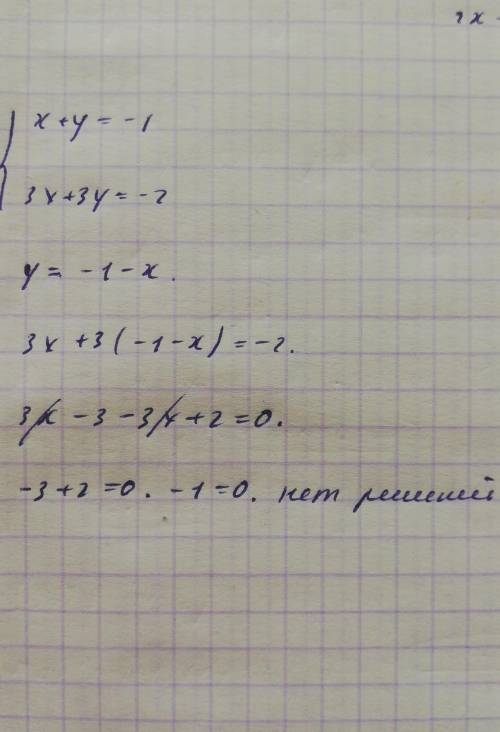 x + y = -1
3x + 3y = -2
y = -1 - x.
3x + 3(-1 - x) = -2.
3x - 3 - 3x + 2 = 0.
-3 + 2 = 0. -1 = 0. нет решений